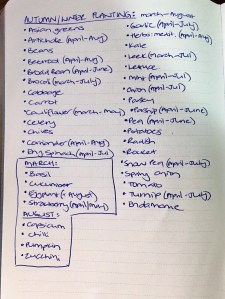 AUTUMN/WINTER PLANTING: march-august
• Asian greens
• Artichoke (April-Aug)
• Beans
• Beetroot (April-Aug)
• Broad Bean (April-June)
• Brocoli (April-July)
• Cabbage
• Carrot
• Cauliflower (march-may)
• Celery
• Chives
• Coriander (April-Aug)
• Eng Spinach (April-Jul)
MARCH:
• Basil
• Cucumber
• Eggplant (+ August)
• Strawberry (April/May)
AUGUST:
• Capsicum
• chilli
• Pumpkin
• Zucchini
• Garlic (April-July)
• Herbs: medit. (April-Aug)
• Kale
• Leek (march-Jul)
• Lettuce
• Mint (April-July)
• Onion (April-July)
• Parsley
• Parsnip (April-June)
• Pea (April-June)
• Potatoes
• Radish
• Rocket
• Snow Pea (April-July)
• Spring onion
• Tomato
• Turnip (April-July)
• Endamame